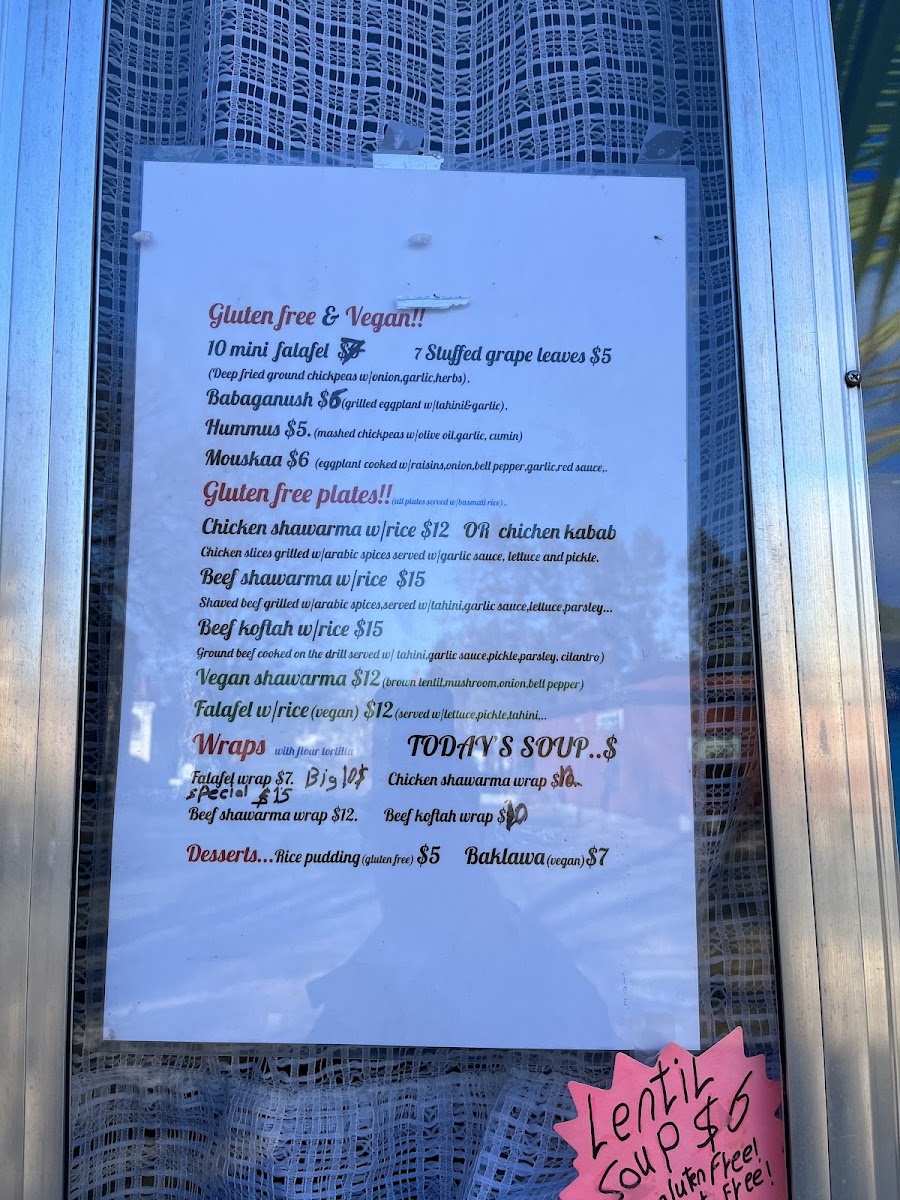 Gluten free & Vegan!!
10 mini falafel $7 7 Stuffed grape leaves $5
(Deep fried ground chickpeas w/onion,garlic,herbs).
Babaganush $6 (grilled eggplant w/tahini&garlic).
Hummus $5. (mashed chickpeas w/olive oil,garlic, cumin)
Mouskaa $6 (eggplant cooked w/raisins,onion,bell pepper,garlic,red sauce,.
Gluten free plates!! (all plates served w/basmati rice)..
Chicken shawarma w/rice $12 OR chichen kabab
Chicken slices grilled w/arabic spices served w/garlic sauce, lettuce and pickle.
Beef shawarma w/rice $15
Shaved beef grilled w/arabic spices,served w/tahini,garlic sauce,lettuce,parsley...
Beef koftah w/rice $15
Ground beef cooked on the drill served w/ tahini,garlic sauce,pickle,parsley, cilantro)
Vegan shawarma $12 (brown lentil,mushroom,onion,bell pepper)
Falafel w/rice (vegan) $12 (served w/lettuce,pickle,tahini,..
Wraps with flour tortilla TODAY'S SOUP..$
Falafel wrap $7. Big 10$ Chicken shawarma wrap $
special $15
Beef shawarma wrap $12. Beef koftah wrap $10
Desserts...Rice pudding (gluten free) $5 Baklawa (vegan) $7
Lentil
Soup $6
gluten Free!
Free!